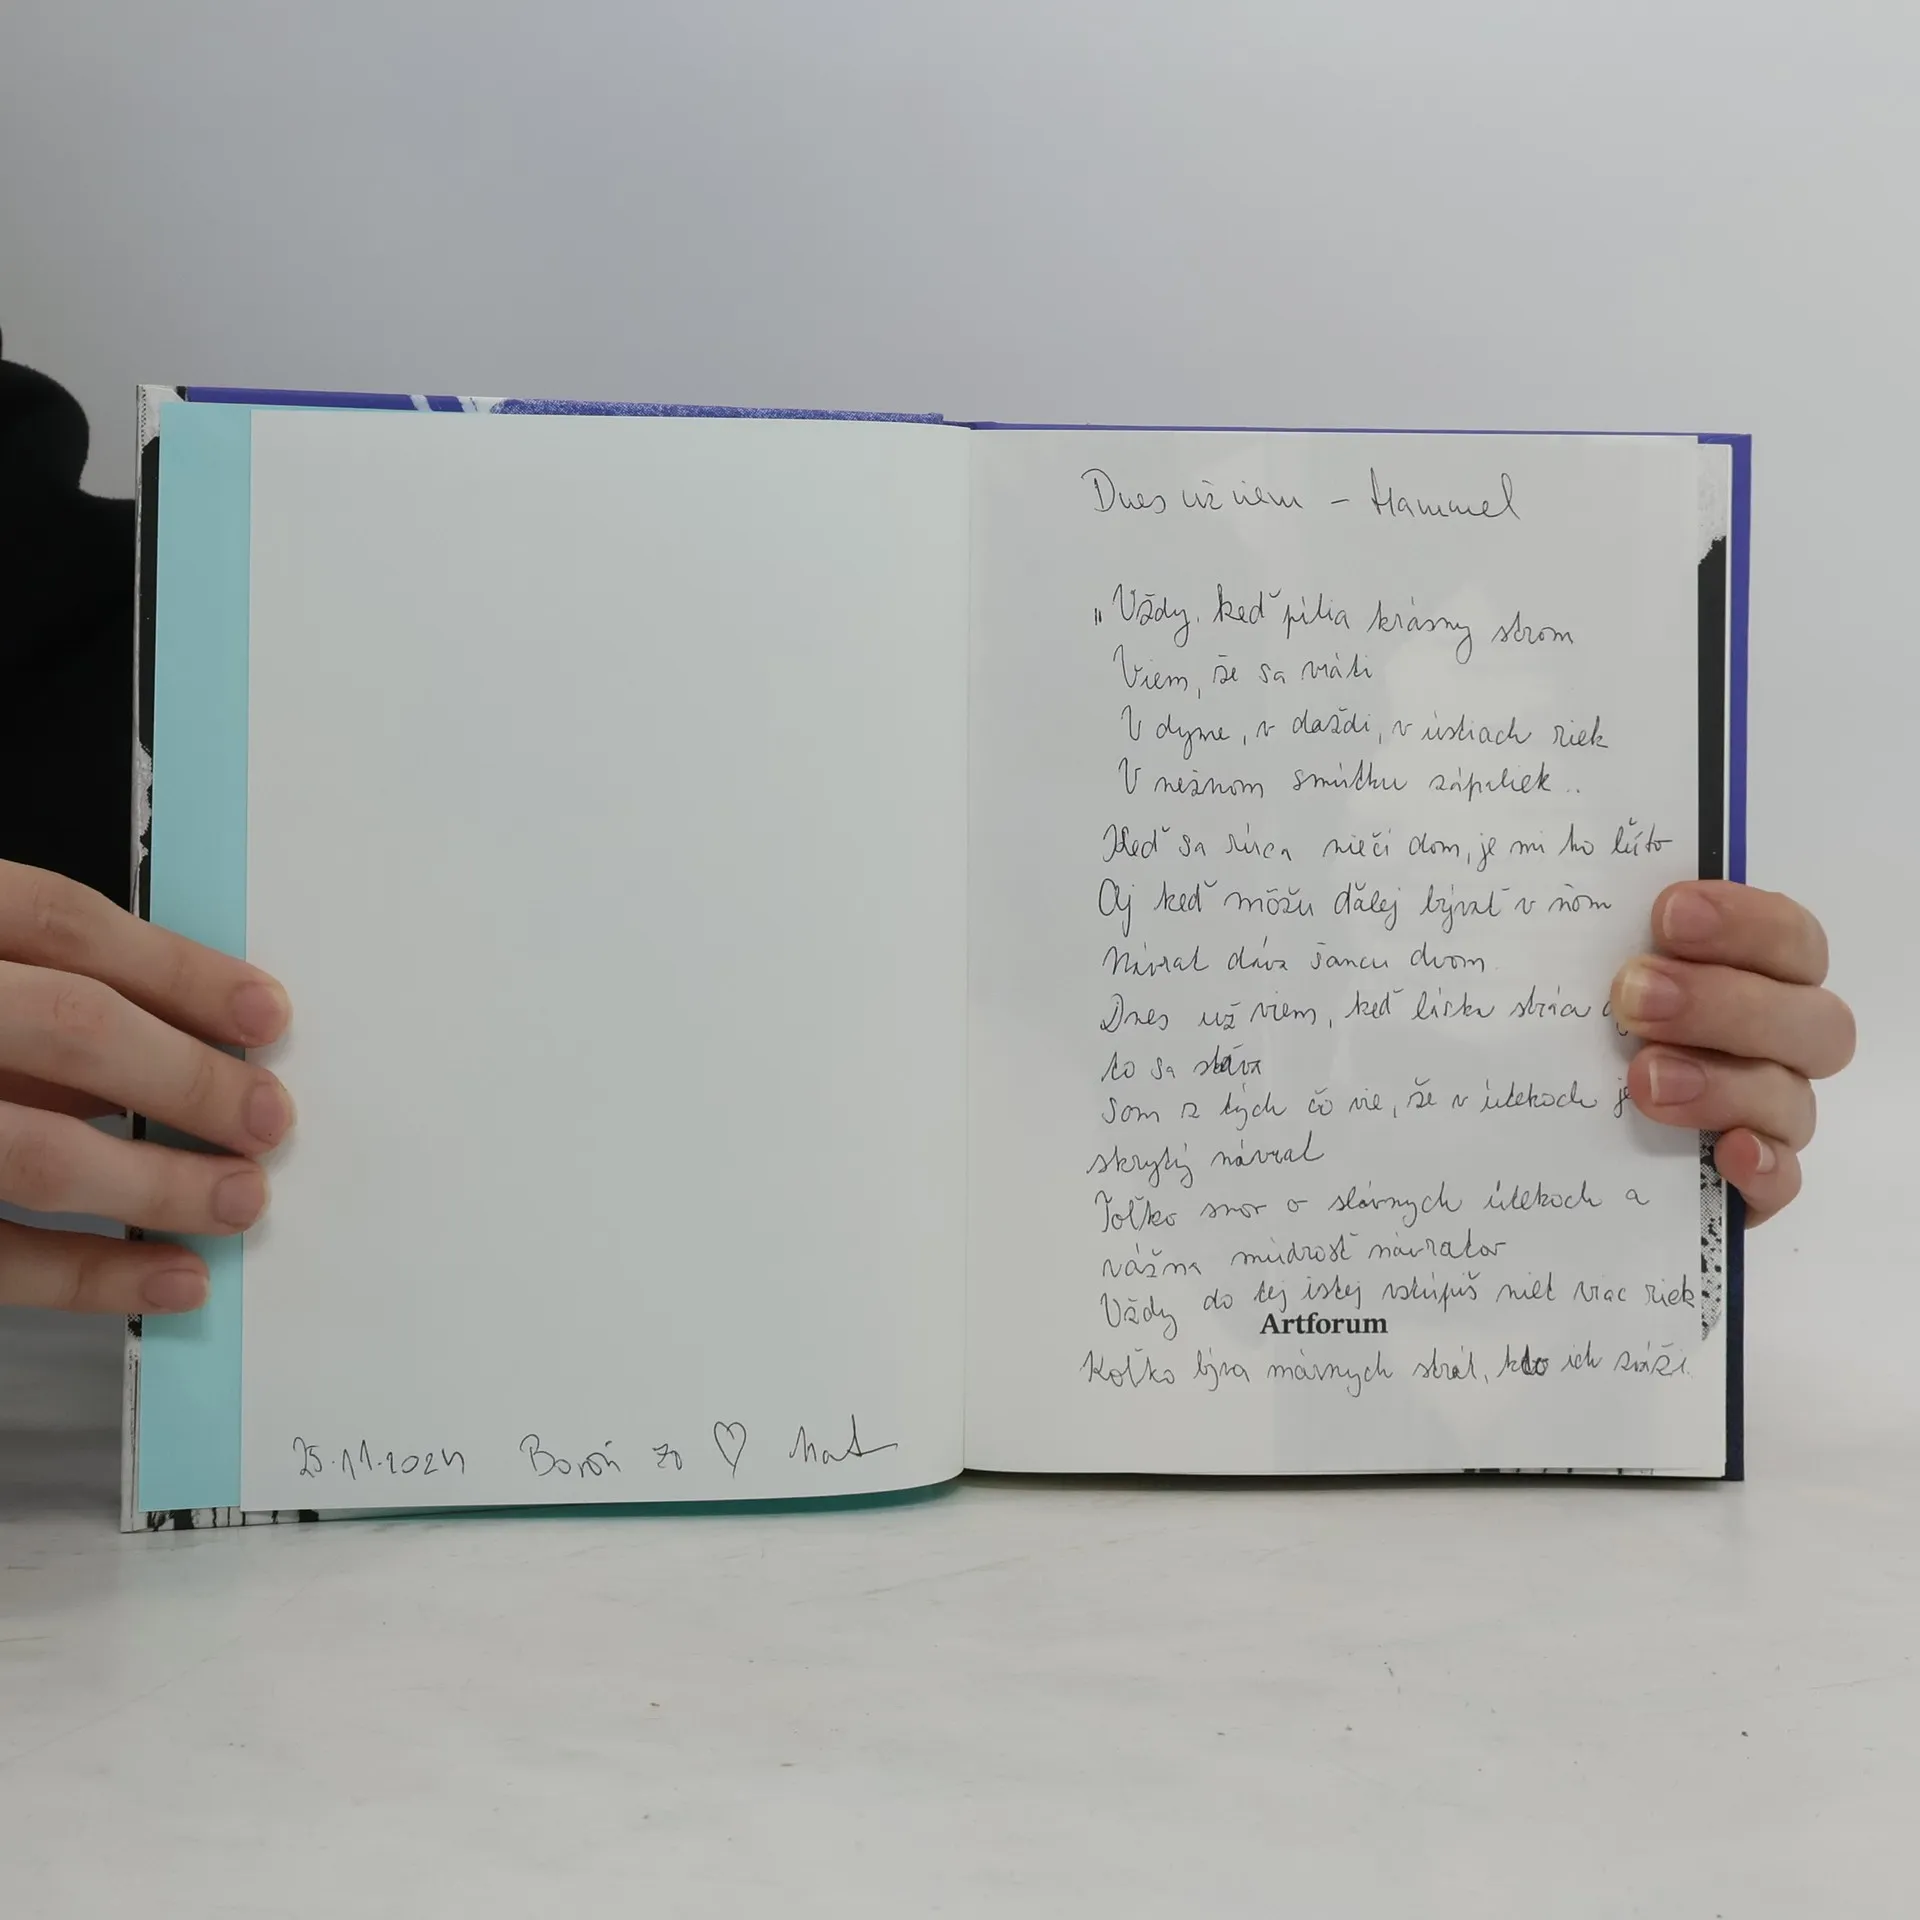 25.11.2024 Boroň zo ♡
Dnes už viem – Hammel
„Vždy, keď pília krásny strom
Viem, že sa vráti
V dyme, v daždi, v ústiach riek
V nežnom smútku zápaliek..
Keď sa rúca niečí dom, je mi ho ľúto
Aj keď môžu ďalej bývať v ňom
Návrat dáva šancu dvom
Dnes už viem, keď láska stráca
to sa stáva
Som z tých čo vie, že v útekoch je
skrytý návrat
Toľko snov o slávnych útekoch a
vážna múdrosť návratov
Vždy do tej istej vstúpiš niet viac riek
Artforum
Koľko býva márnych strát, kto ich zváži.